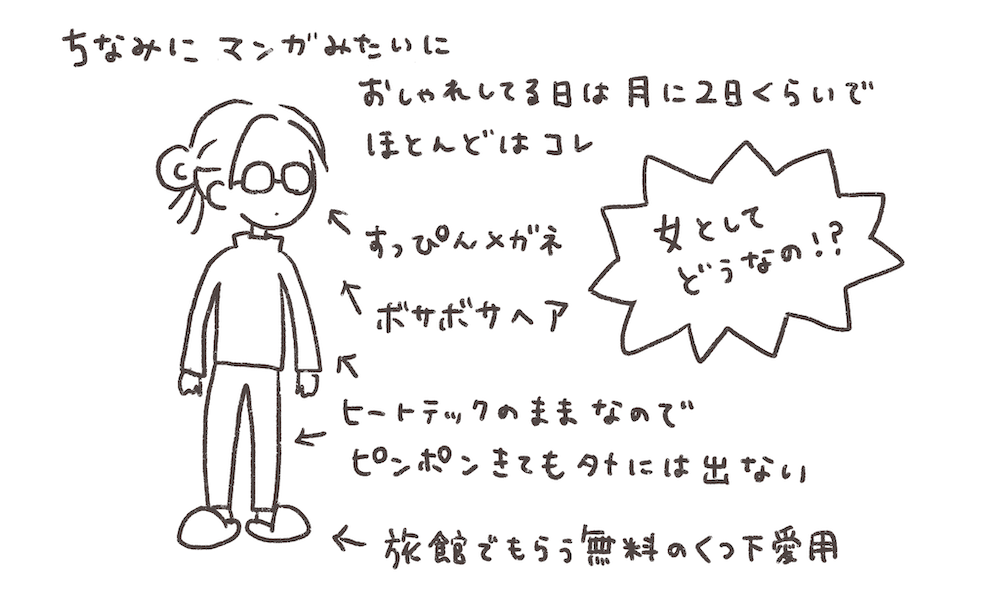 ちなみに マンガみたいに
おしゃれしてる日は 月に2日くらいで
ほとんどは コレ
女として
どうなの!?
すっぴんメガネ
ボサボサヘア
ヒートテックのまま なので
ピンポンきても外には出ない
旅館でもらう無料のくつ下愛用